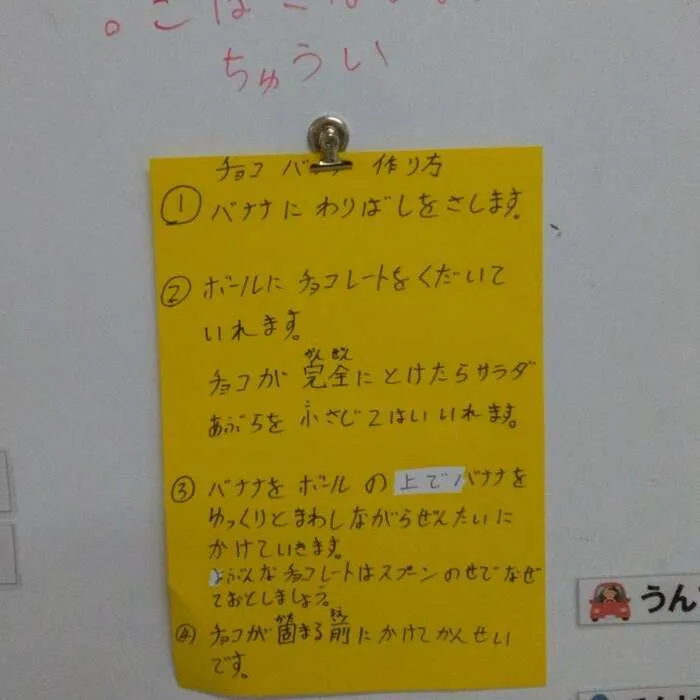 。こぼさない
ちゅうい
チョコ バナナ 作り方
① バナナに わりばしをさします。
② ボールに チョコレートをくだいて
いれます。
チョコが 完全にとけたらサラダ
かんぜん
あぶらを 小さじ1ぱいいれます。
③ バナナを ボールの上でバナナを
ゆっくりとまわしながらぜんたいに
かけていきます。
よぶんなチョコレートはスプーンのせでなぜ
ておとしましょう。
④ チョコが固まる前にかけてかんせい
です。
うん